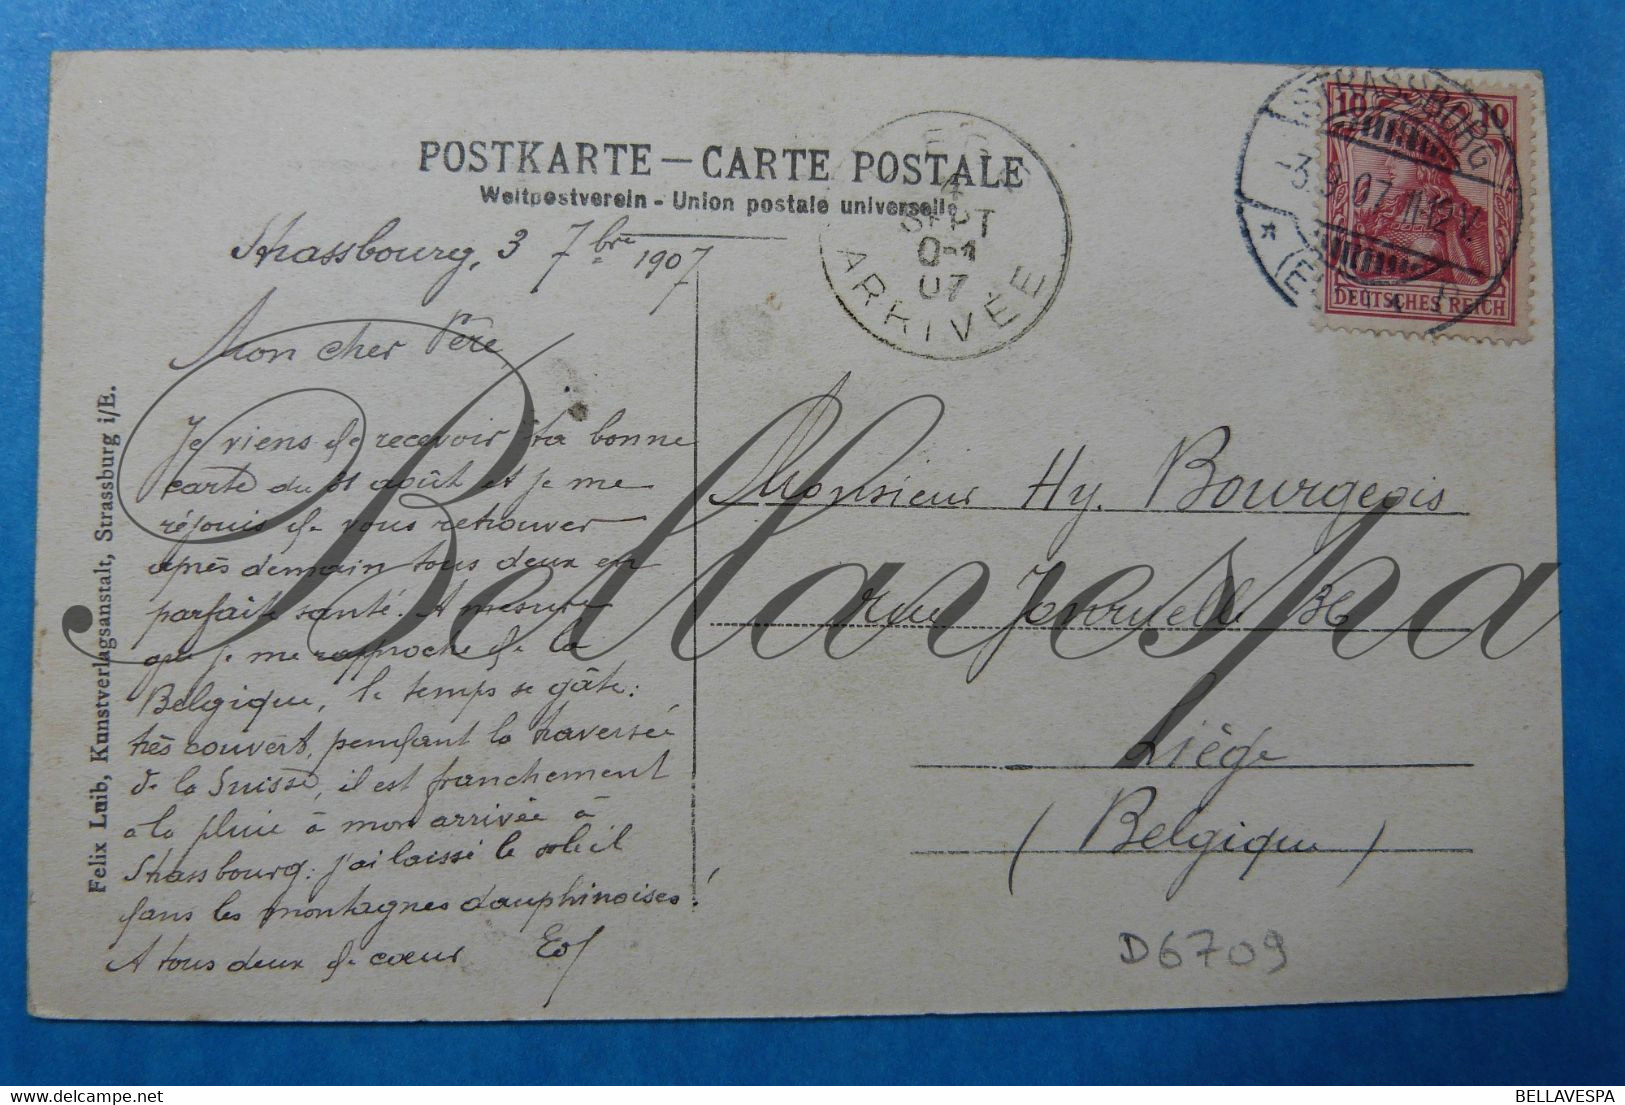 POSTKARTE — CARTE POSTALE
Weltpostverein - Union postale universelle
Strassbourg, 3 7bre 1907
Mon cher Père,
Je viens de recevoir ta bonne
carte du 31 août et je me
réjouis de vous retrouver
après demain tous deux en
parfaite santé. A mesure
que je me rapproche de la
Belgique, le temps se gâte:
très couvert pendant la traversée
de la Suisse, il est franchement
à la pluie à mon arrivée à
Strassbourg: j'ai laissé le soleil
dans les montagnes dauphinoises!
A tous deux de cœur
Felix Luib, Kunstverlagsanstalt, Strassburg i/E.
4
SEPT
0-1
07
ARRIVÉE
STRASSBURG
3.9.07 11-12V.
10 10
DEUTSCHES REICH
Monsieur Hy. Bourgeois
rue 36
Liège
(Belgique)
D6709
Bellavespa
BELLAVESPA